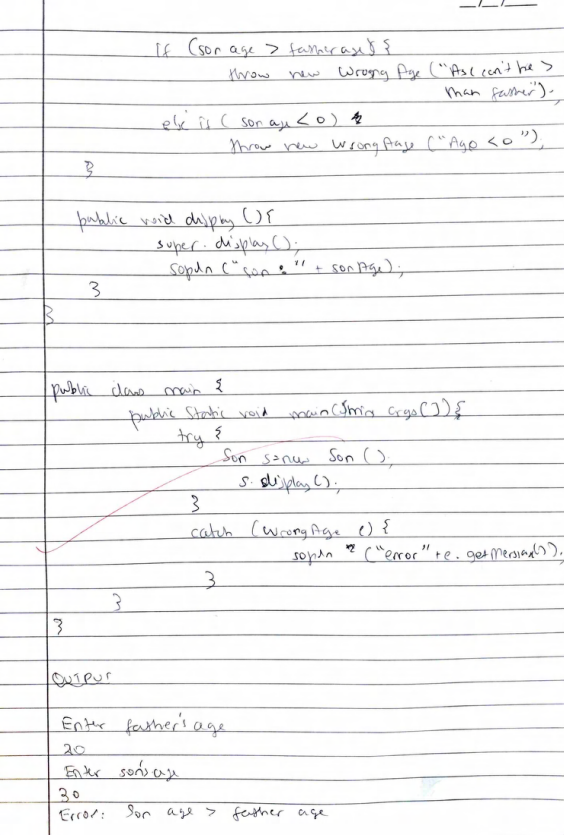 if (son age > father age) {
throw new Wrong Age ("Age can't be >
than father");
else if ( son age < 0)
throw new WrongAge ("Age < 0");
}
public void display () {
super. display();
sopln ("son : " + sonAge);
}
}
public class main {
public static void main(String args[]) {
try {
Son s=new Son ();
s. display();
}
catch (WrongAge e) {
sopln ("error" + e. getMessage());
}
}
}
OUTPUT
Enter father's age
20
Enter son's age
30
Error: Son age > father age